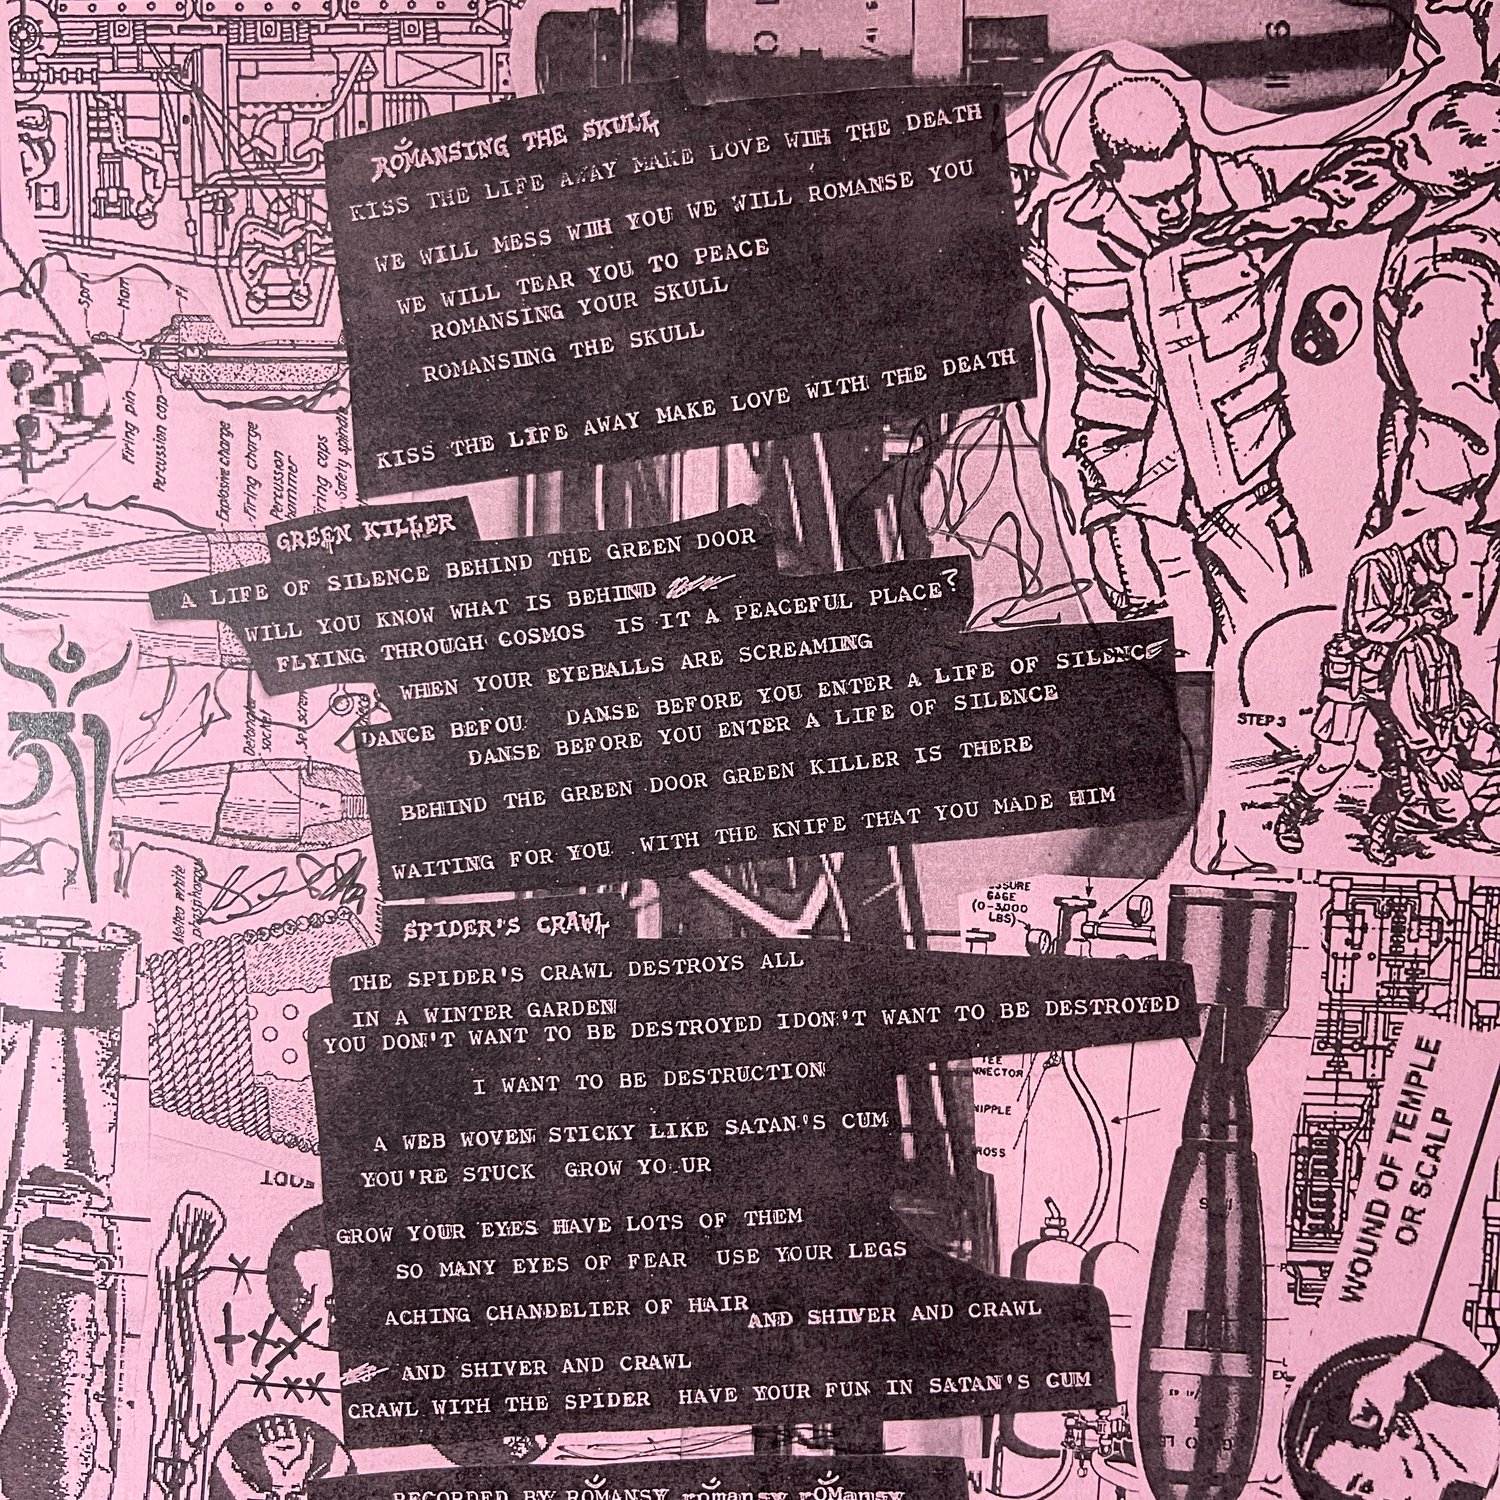 ROMANSING THE SKULL
KISS THE LIFE AWAY MAKE LOVE WITH THE DEATH
WE WILL MESS WITH YOU WE WILL ROMANSE YOU
WE WILL TEAR YOU TO PEACE
ROMANSING YOUR SKULL
ROMANSING THE SKULL
KISS THE LIFE AWAY MAKE LOVE WITH THE DEATH
GREEN KILLER
A LIFE OF SILENCE BEHIND THE GREEN DOOR
WILL YOU KNOW WHAT IS BEHIND
FLYING THROUGH COSMOS IS IT A PEACEFUL PLACE?
WHEN YOUR EYEBALLS ARE SCREAMING
DANCE BEFOU DANSE BEFORE YOU ENTER A LIFE OF SILENCE
DANSE BEFORE YOU ENTER A LIFE OF SILENCE
BEHIND THE GREEN DOOR GREEN KILLER IS THERE
WAITING FOR YOU WITH THE KNIFE THAT YOU MADE HIM
SPIDER'S CRAWL
THE SPIDER'S CRAWL DESTROYS ALL
IN A WINTER GARDEN
YOU DON'T WANT TO BE DESTROYED IDON'T WANT TO BE DESTROYED
I WANT TO BE DESTRUCTION
A WEB WOVEN STICKY LIKE SATAN'S CUM
YOU'RE STUCK GROW YO UR
GROW YOUR EYES HAVE LOTS OF THEM
SO MANY EYES OF FEAR USE YOUR LEGS
ACHING CHANDELIER OF HAIR AND SHIVER AND CRAWL
AND SHIVER AND CRAWL
CRAWL WITH THE SPIDER HAVE YOUR FUN IN SATAN'S CUM
RECORDED BY ROMANSY romansy rOMansy
Firing pin
Percussion cap
Explosive charge
Firing charge
Percussion
hammer
Firing caps
Safety spindle
Molten white
FOOT
STEP 3
GAGE
(0-3,000
LBS)
TEE
NIPPLE
WOUND OF TEMPLE
OR SCALP